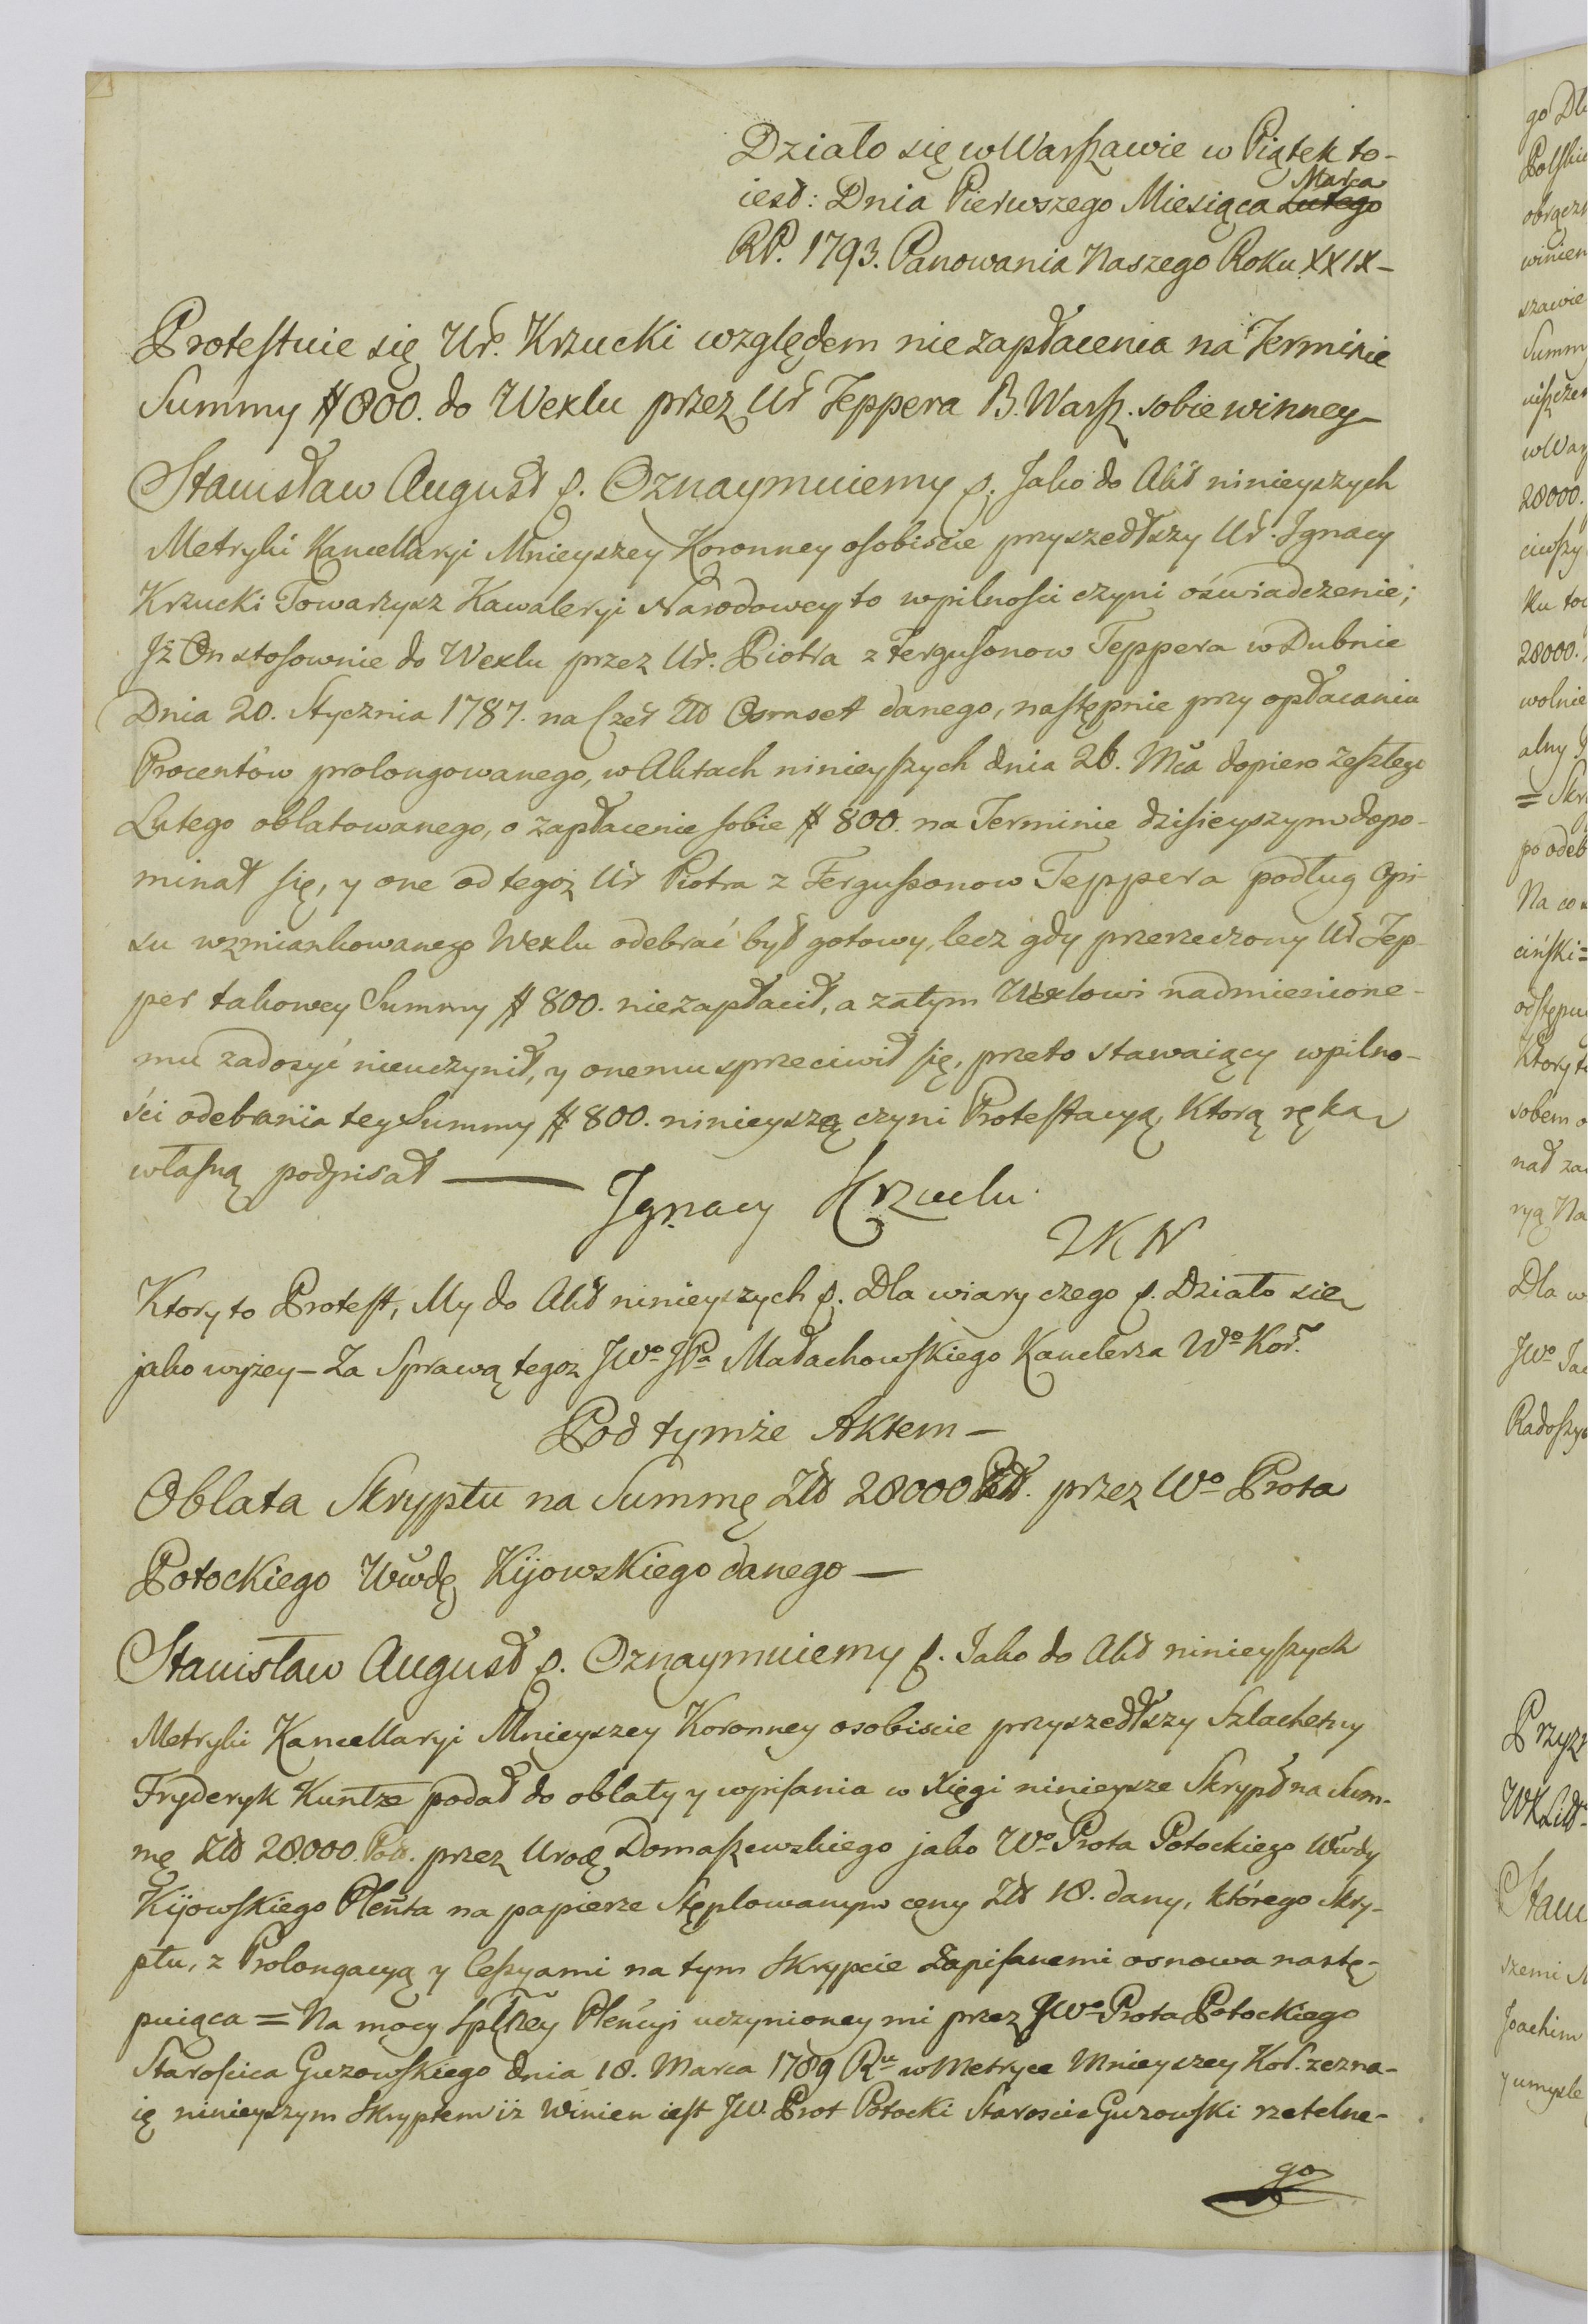 Działo się w Warszawie w Piątek to-
iest: Dnia Pierwszego Miesiąca Lutego Marca
RP. 1793. Panowania Naszego Roku XXIX-
Protestuie się Ur. Krzucki względem niezapłacenia na Terminie
Summy # 800. do Wexlu przez Ur Teppera B. Warsz. sobie winney-
Stanisław August p. Oznaymuiemy p. Jako do Akt ninieyszych
Metryki Kancellaryi Mnieyszey Koronney osobiście przyszedłszy Ur. Ignacy
Krzucki Towarzysz Kawaleryi Narodowey to w pilności czyni oświadczenie;
Jż On stosownie do Wexlu przez Ur. Piotra z Fergusonow Teppera w Dubnie
Dnia 20. Stycznia 1787. na Czer Złł Osmset danego, następnie przy opłacaniu
Procentów prolongowanego, w Aktach ninieyszych dnia 26. Mca dopiero zeszłego
Lutego oblatowanego, o zapłacenie sobie # 800. na Terminie dzisieyszym dopo-
minał się, y one od tegoż Ur Piotra z Fergussonow Teppera podług Opi-
su wzmiankowanego Wexlu odebrać był gotowy, lecz gdy przerzeczony Ur Tep-
per takowey Summy # 800. niezapłacił, a zatym Wexlowi nadmienione-
mu zadosyć nieuczynił, y onemu sprzeciwił się, przeto stawaiący w pilno-
ści odebrania tey Summy # 800. ninieyszą czyni Protestacyą, Ktorą ręką
własną podpisał —
Ignacy Krzucki.
TKN
Ktory to Protest, My do Akt ninieyszych p. Dla wiary czego p. Działo się
jako wyżey - Za Sprawą tegoż JWo JPa Małachowskiego Kanclerza Wo Kor.
Pod tymże Aktem -
Oblata Skryptu na Summę Złł 28000 Poll. przez Wo Prota
Potockiego Wwdę Kijowskiego danego —
Stanisław August p. Oznaymuiemy p. Jako do Akt ninieyszych
Metryki Kancellaryi Mnieyszey Koronney osobiscie przyszedłszy Szlachetny
Fryderyk Kuntze podał do oblaty y wpisania w Xięgi ninieysze Skrypt na Sum-
mę Złł 28.000. Poll. przez Uroę Domaszewskiego jako Wo Prota Potockiego Wwdy
Kijowskiego Pleńta na papierze Stęplowanym ceny Złł 18. dany, którego Skry-
ptu, z Prolongacyą y Cessyami na tym Skrypcie zapisanemi osnowa nastę-
puiąca = Na mocy Splney Pleńcyi uczynioney mi przez JWo Prota Potockiego
Starościca Guzowskiego dnia 18. Marca 1789 Ru w Metryce Mnieyszey Kor. zezna-
ię ninieyszym Skryptem iż Winien iest JW. Prot Potocki Starościc Guzowski rzetelne-
go